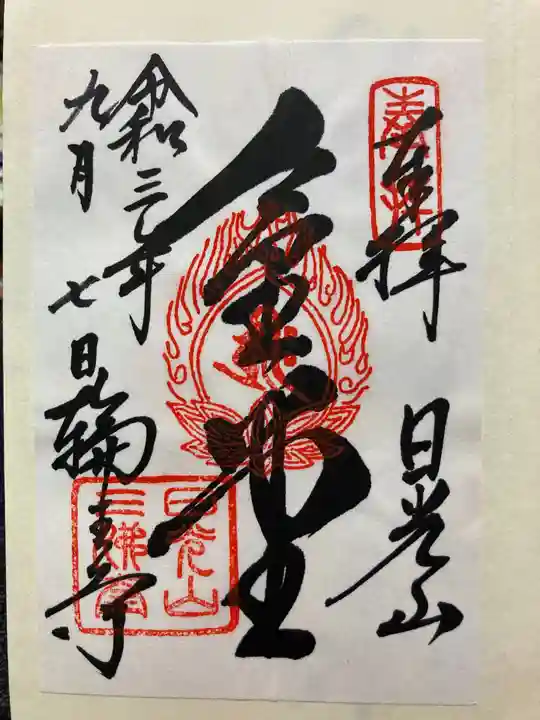 奉拝
奉拝
日光山
金堂
令和三年
九月
七日
輪王寺
日光山
三佛堂